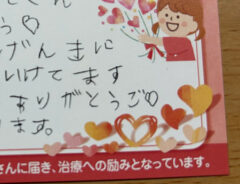 う♡
げんきに
いけてます
ありがとうご♡
ります。
さんに届き、治療への励みとなっています。